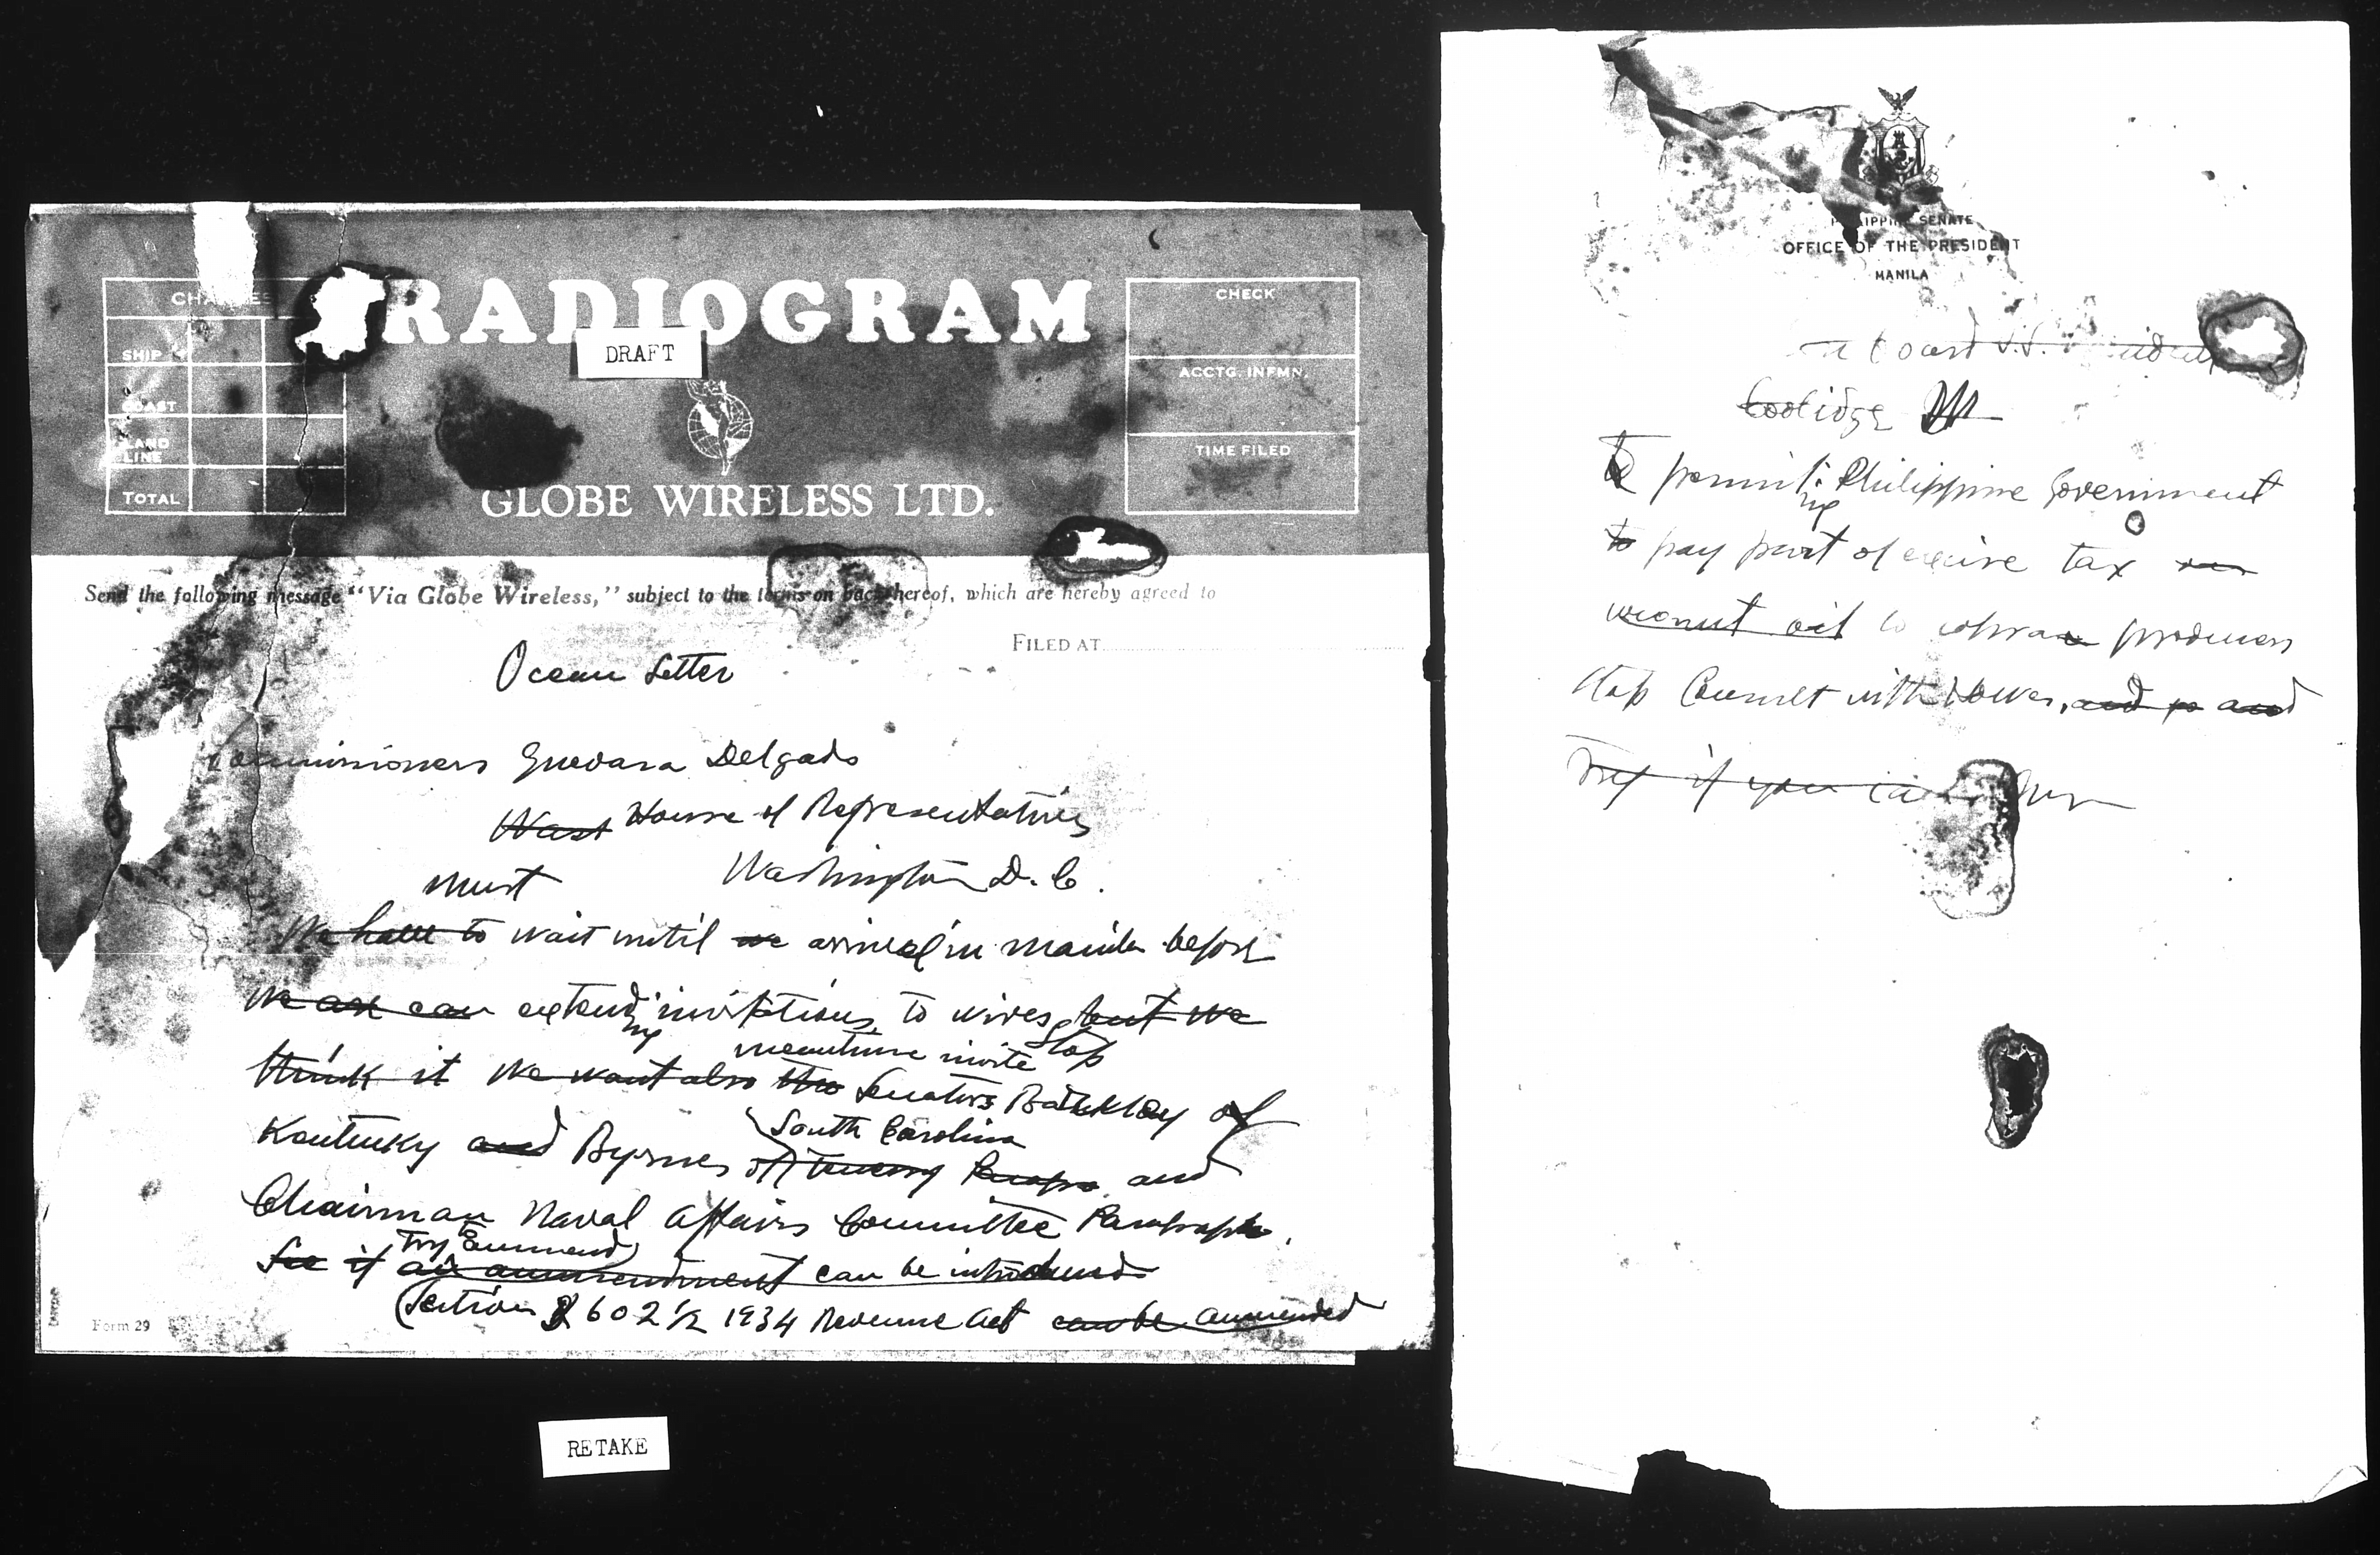 RADIOGRAM
DRAFT
CHARGES
SHIP
COAST
LAND LINE
TOTAL
CHECK
ACCTG. INFMN.
TIME FILED
GLOBE WIRELESS LTD.
Send the following message "Via Globe Wireless," subject to the terms on back hereof, which are hereby agreed to
FILED AT
Ocean Letter
Commissioners Guevara Delgado
Wash House of Representatives
Washington D.C.
must
We have to wait until we arrival in Manila before
We are can extending invitations to wives but we
meantime invite Stop
think it We want also two Senators Barkley of
South Carolina
Kentucky and Byrnes of and
Chairman Naval Affairs Committee Paragraph
Try ammend
See if an ammendment can be introduced
Section 602 1/2 1934 Revenue Act can be ammended
Form 29
RETAKE
PHILIPPINE SENATE
OFFICE OF THE PRESIDENT
MANILA
board S.S.
Coolidge
To permitting Philippine Government
to pay part of excise tax on
coconut oil to copra producers
Stop Consult with Hawes, and so and
Try if you can